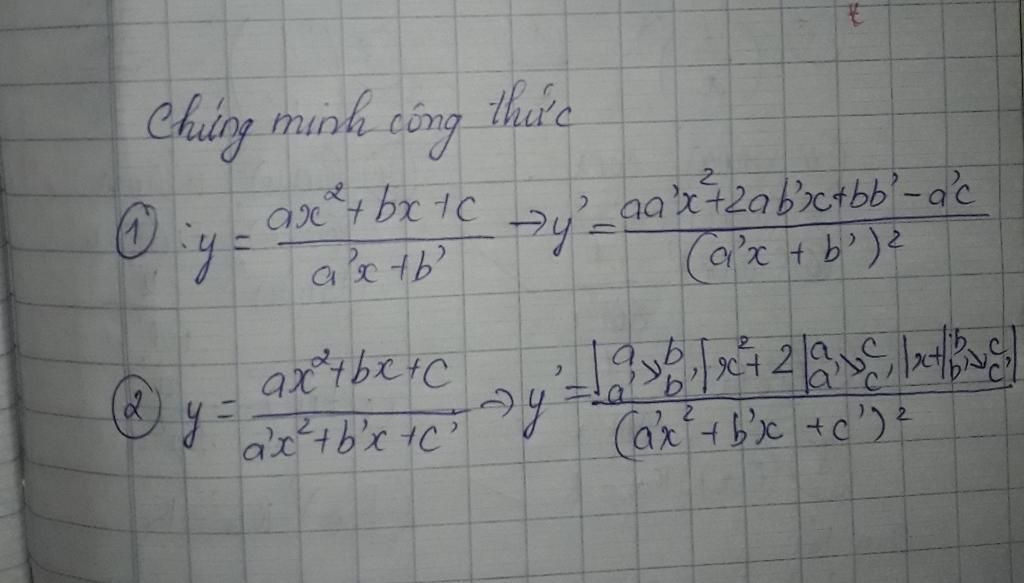 Chứng minh công thức
① : y = \frac{ax^2 + bx + c}{a'x + b'} → y' = \frac{aa'x^2 + 2ab'x + bb' - a'c}{(a'x + b')^2}
② y = \frac{ax^2 + bx + c}{a'x^2 + b'x + c'} → y' = \frac{\begin{vmatrix} a & b \\ a' & b' \end{vmatrix} x^2 + 2 \begin{vmatrix} a & c \\ a' & c' \end{vmatrix} x + \begin{vmatrix} b & c \\ b' & c' \end{vmatrix}}{(a'x^2 + b'x + c')^2}